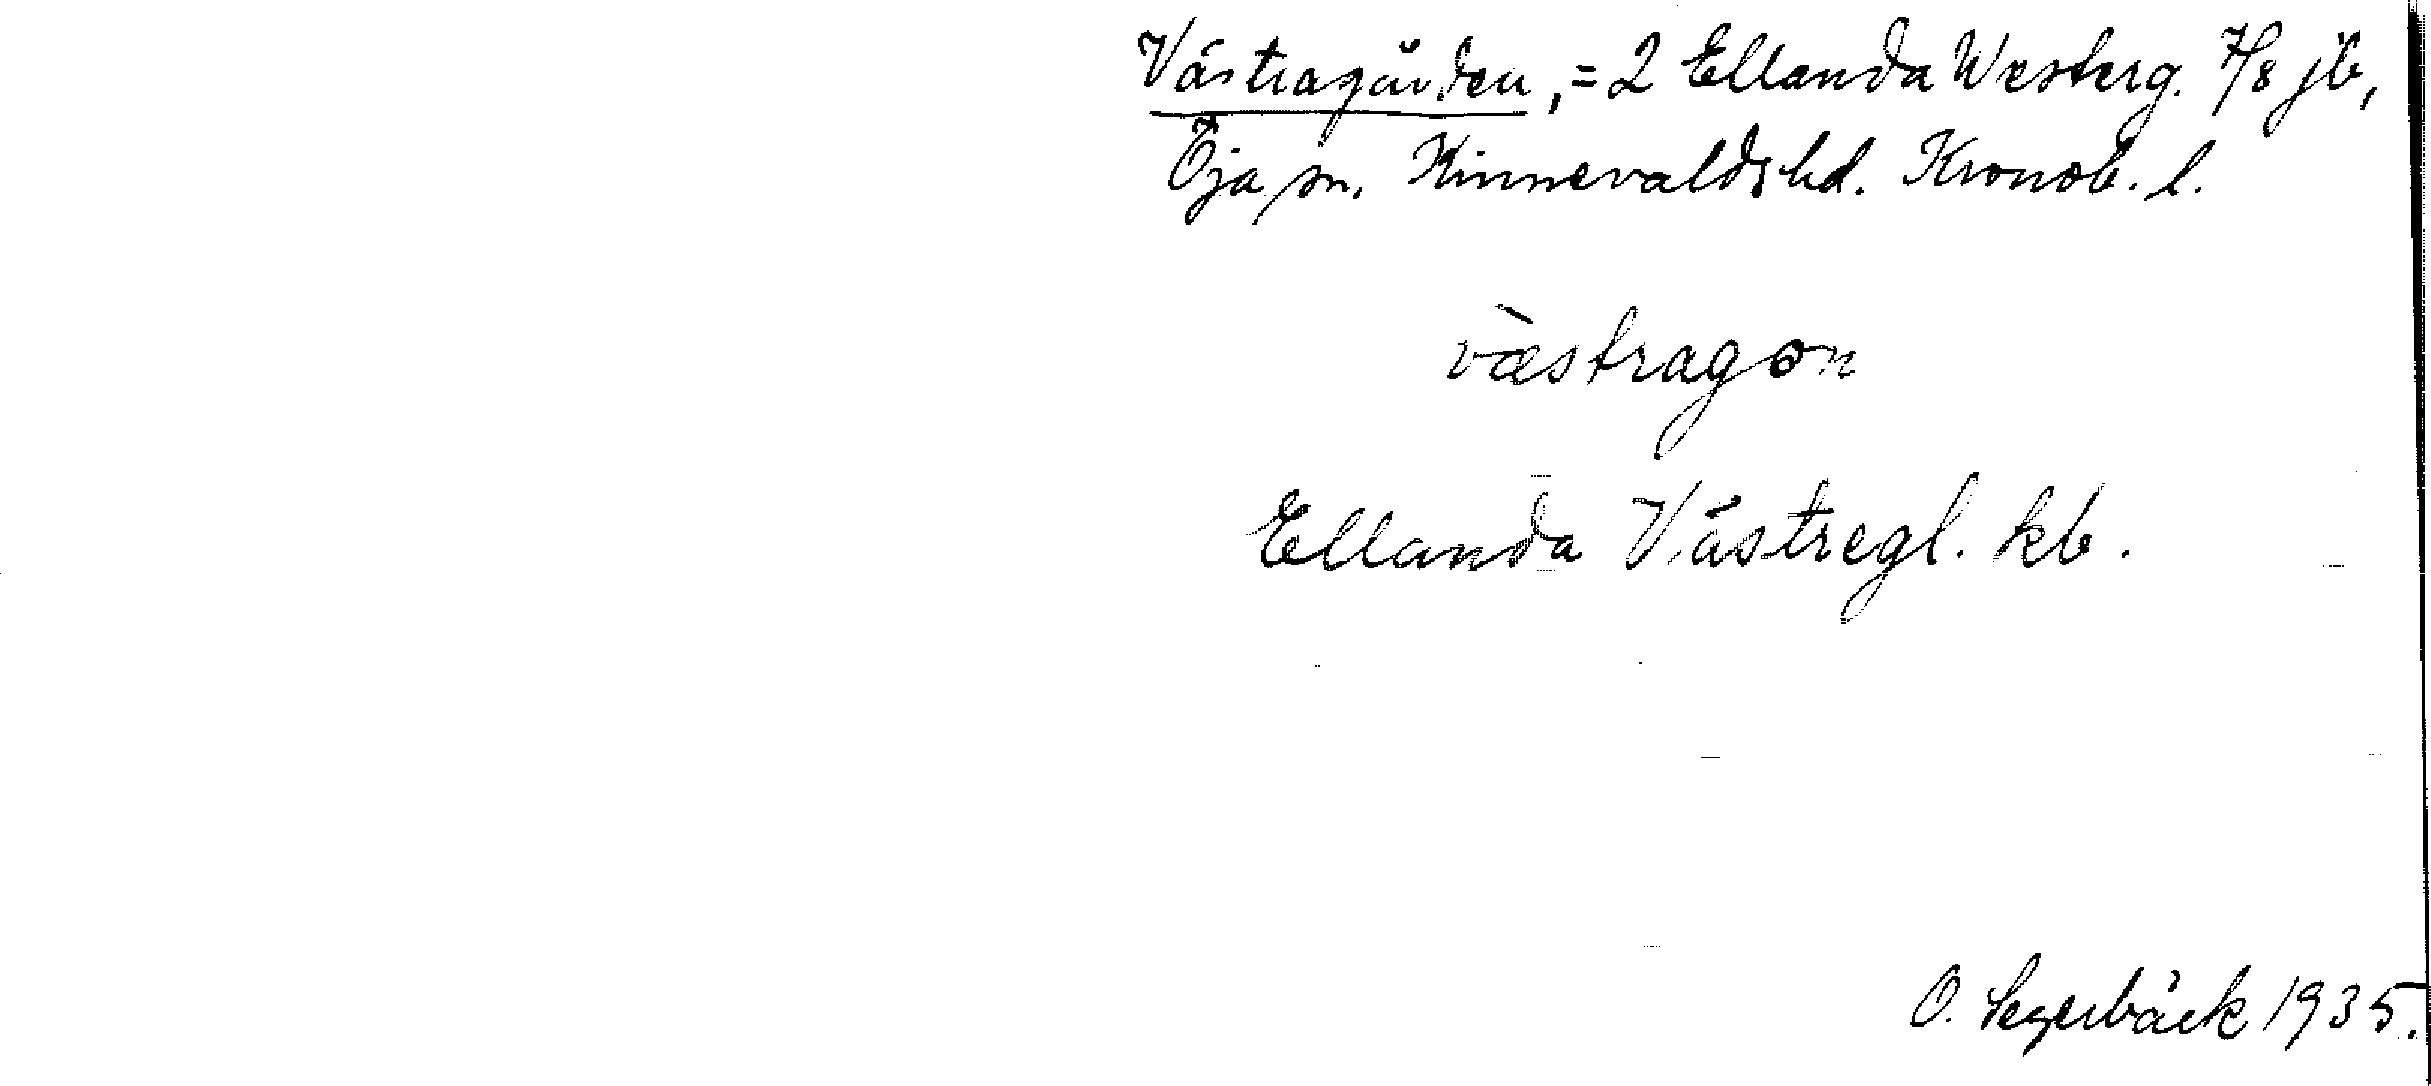 Västragården, = 2 Ellanda Westerg. 7/8 jb,
Öja sn. Kinnevalds hd. Kronob. l.
væ̀stragon
Ellanda Västregl. kb.
O. Segerbäck 1935.